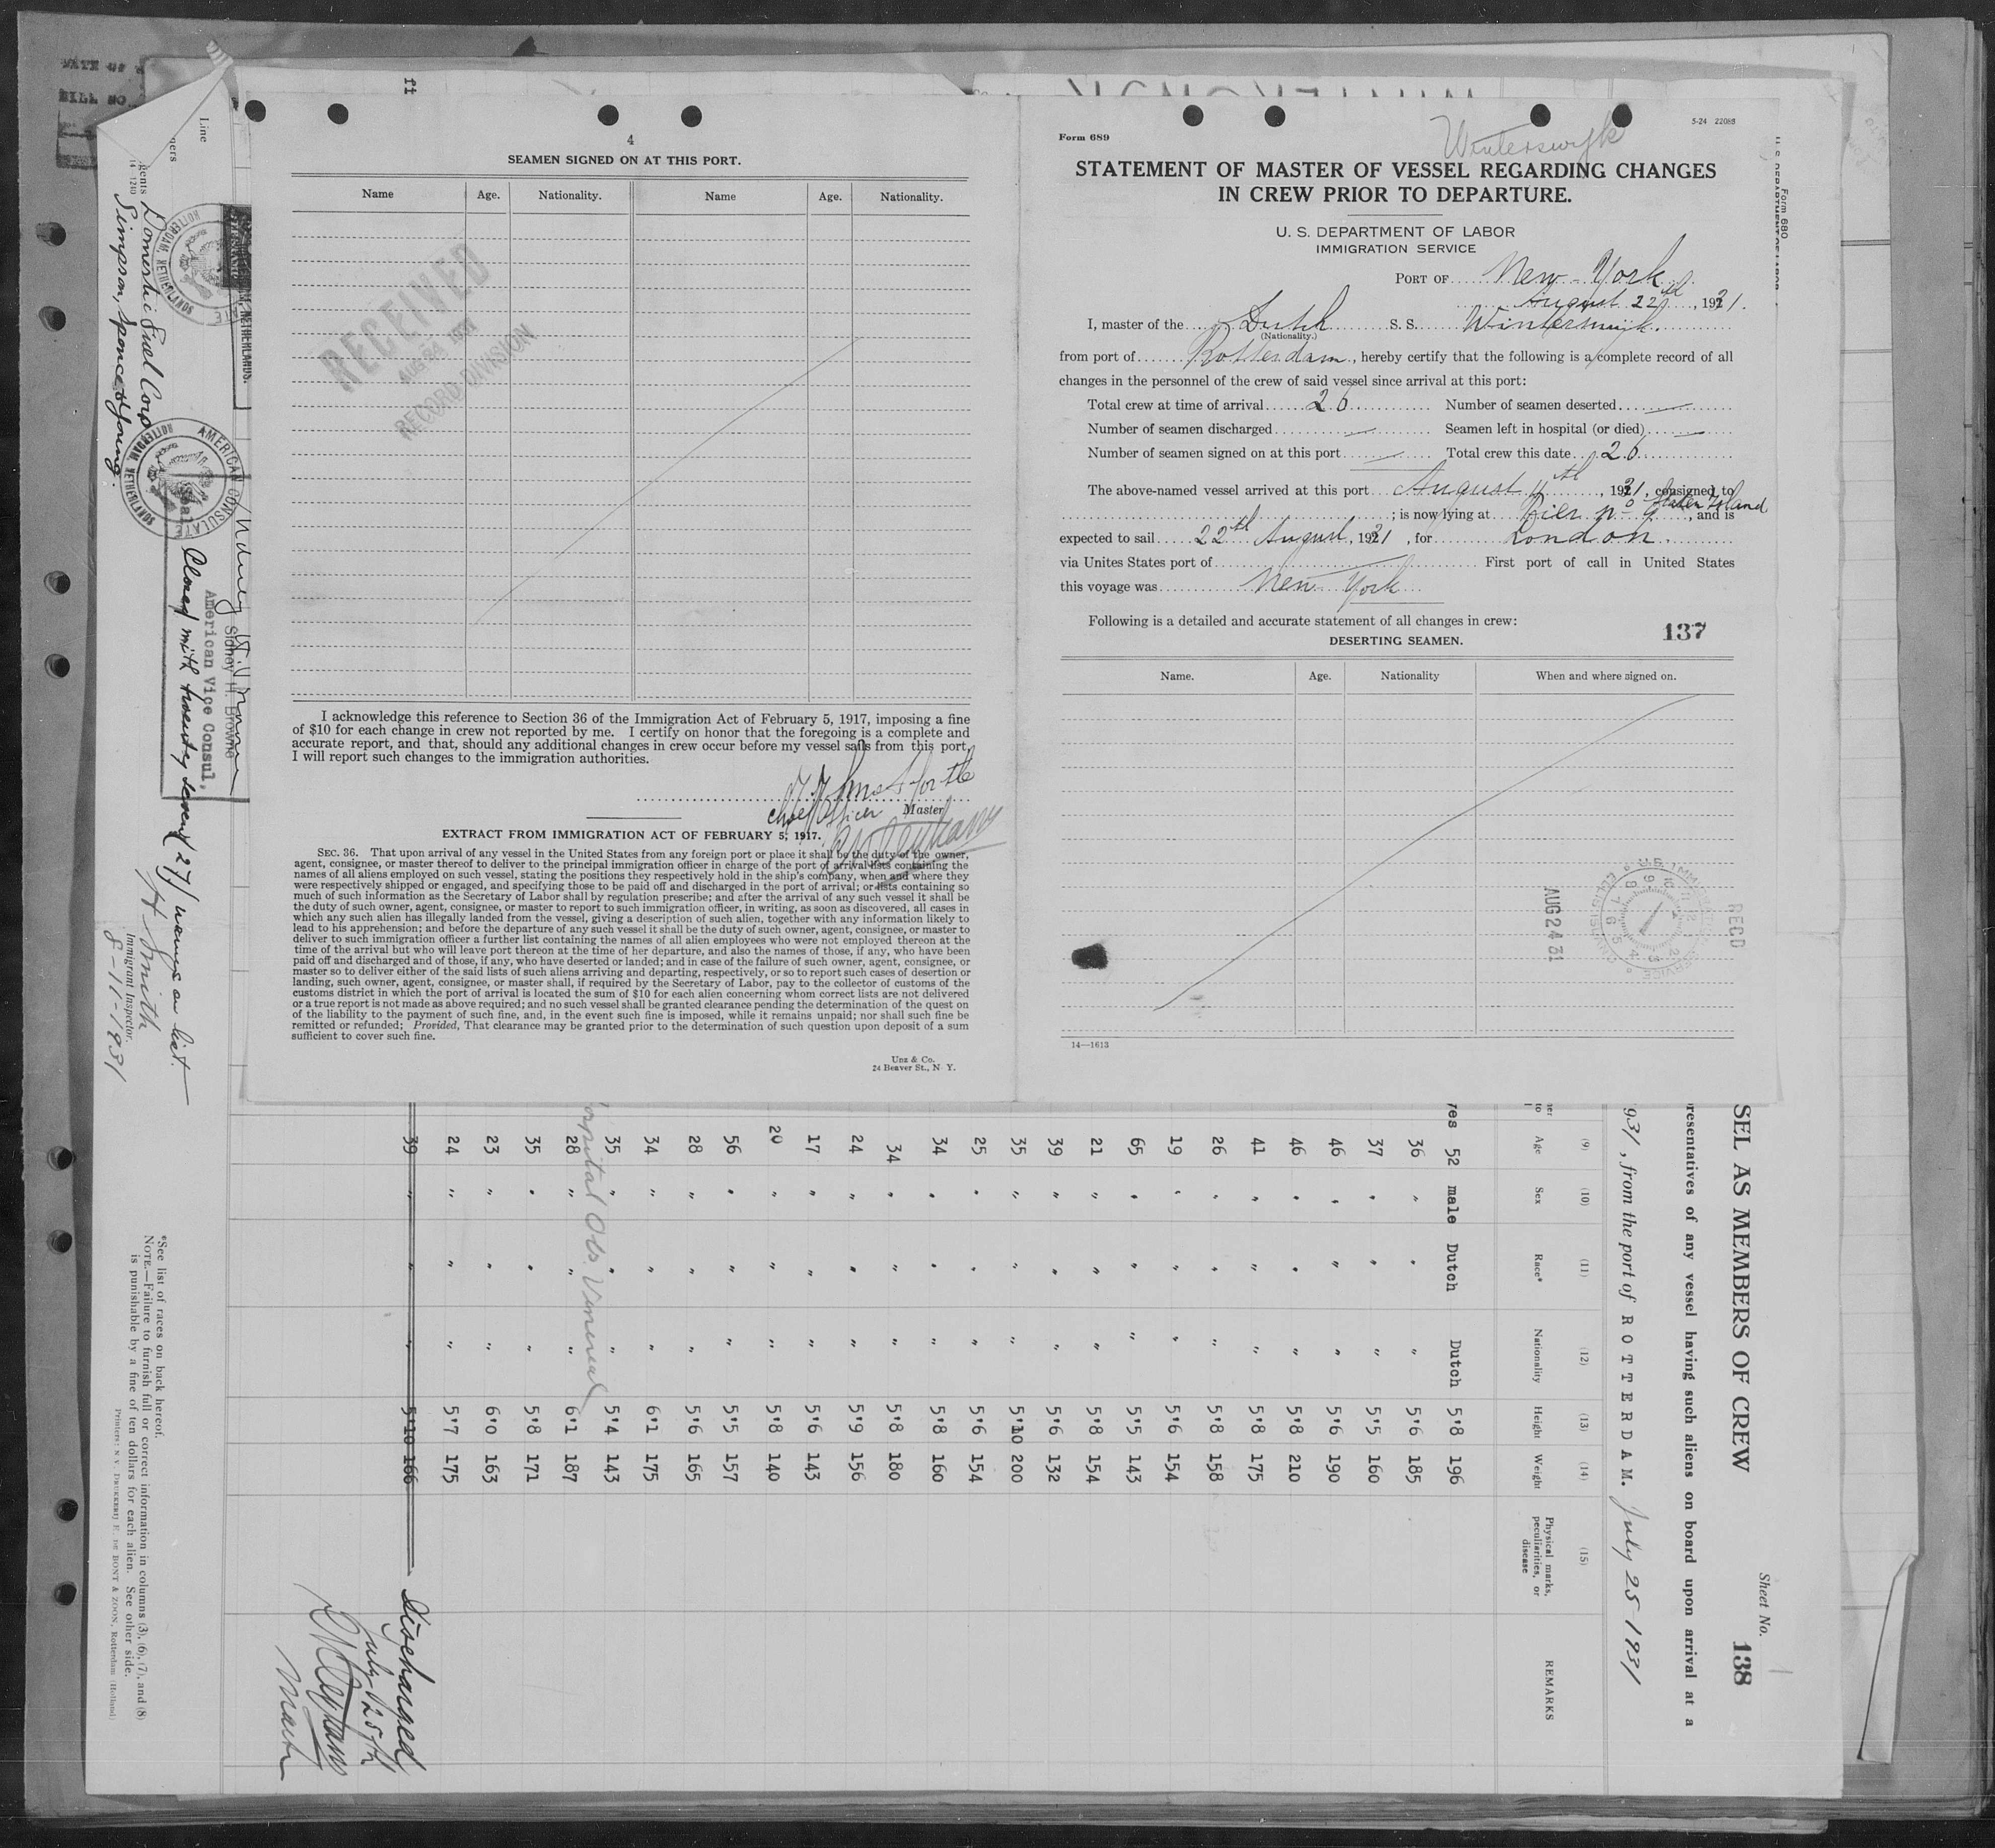 4
SEAMEN SIGNED ON AT THIS PORT.
Name Age. Nationality. Name Age. Nationality.
RECEIVED
AUG 24 1931
RECORD DIVISION
I acknowledge this reference to Section 36 of the Immigration Act of February 5, 1917, imposing a fine
of $10 for each change in crew not reported by me. I certify on honor that the foregoing is a complete and
accurate report, and that, should any additional changes in crew occur before my vessel sails from this port,
I will report such changes to the immigration authorities.
for the
chief officer Master
EXTRACT FROM IMMIGRATION ACT OF FEBRUARY 5, 1917.
SEC. 36. That upon arrival of any vessel in the United States from any foreign port or place it shall be the duty of the owner,
agent, consignee, or master thereof to deliver to the principal immigration officer in charge of the port of arrival lists containing the
names of all aliens employed on such vessel, stating the positions they respectively hold in the ship's company, when and where they
were respectively shipped or engaged, and specifying those to be paid off and discharged in the port of arrival; or lists containing so
much of such information as the Secretary of Labor shall by regulation prescribe; and after the arrival of any such vessel it shall be
the duty of such owner, agent, consignee, or master to report to such immigration officer, in writing, as soon as discovered, all cases in
which any such alien has illegally landed from the vessel, giving a description of such alien, together with any information likely to
lead to his apprehension; and before the departure of any such vessel it shall be the duty of such owner, agent, consignee, or master to
deliver to such immigration officer a further list containing the names of all alien employees who were not employed thereon at the
time of the arrival but who will leave port thereon at the time of her departure, and also the names of those, if any, who have been
paid off and discharged and of those, if any, who have deserted or landed; and in case of the failure of such owner, agent, consignee, or
master so to deliver either of the said lists of such aliens arriving and departing, respectively, or so to report such cases of desertion or
landing, such owner, agent, consignee, or master shall, if required by the Secretary of Labor, pay to the collector of customs of the
customs district in which the port of arrival is located the sum of $10 for each alien concerning whom correct lists are not delivered
or a true report is not made as above required; and no such vessel shall be granted clearance pending the determination of the quest on
of the liability to the payment of such fine, and, in the event such fine is imposed, while it remains unpaid; nor shall such fine be
remitted or refunded; Provided, That clearance may be granted prior to the determination of such question upon deposit of a sum
sufficient to cover such fine.
Unz & Co.
24 Beaver St., N. Y.
Form 689
Winterswijk
5-24 22088
STATEMENT OF MASTER OF VESSEL REGARDING CHANGES
IN CREW PRIOR TO DEPARTURE.
U. S. DEPARTMENT OF LABOR
IMMIGRATION SERVICE
PORT OF New-York
August 22d, 1931.
I, master of the Dutch S. S. Winterswijk.
(Nationality.)
from port of Rotterdam, hereby certify that the following is a complete record of all
changes in the personnel of the crew of said vessel since arrival at this port:
Total crew at time of arrival 26 Number of seamen deserted —
Number of seamen discharged — Seamen left in hospital (or died) —
Number of seamen signed on at this port — Total crew this date 26
The above-named vessel arrived at this port August 11th, 1931, consigned to
; is now lying at Pier no 9 Staten Island, and is
expected to sail 22th August, 1931, for London.
via Unites States port of First port of call in United States
this voyage was New York
Following is a detailed and accurate statement of all changes in crew:
137
DESERTING SEAMEN.
Name. Age. Nationality When and where signed on.
REC'D
AUG 24 31
U.S. IMMIGRATION SERVICE ELLIS ISLAND
14—1613
Form 680
U. S. DEPARTMENT OF LABOR
DATE OF
BILL NO.
Line
Agents Domestic Fuel Corp
Simpson, Spence & Young
14 1240
AMERICAN CONSULATE
ROTTERDAM, NETHERLANDS
Sidney H. Browne
American Vice Consul,
Closed with twenty seven (27) names on list.
H. Smith
Immigrant Inspector.
8-11-1931
*See list of races on back hereof.
NOTE.—Failure to furnish full or correct information in columns (3), (6), (7), and (8)
is punishable by a fine of ten dollars for each alien. See other side.
Printers: N.V. DRUKKERIJ F. DE BONT & ZOON, Rotterdam (Holland)
Sheet No. 1
138
SEL AS MEMBERS OF CREW
resentatives of any vessel having such aliens on board upon arrival at a
931, from the port of ROTTERDAM. July 25 1931
(9) (10) (11) (12) (13) (14) (15)
Age Sex Race* Nationality Height Weight Physical marks, peculiarities, or disease REMARKS
yes 52 male Dutch Dutch 5'8 196
36 " " " 5'6 185
37 " " " 5'5 160
46 " " " 5'6 190
46 " " " 5'8 210
41 " " " 5'8 175
26 " " " 5'8 158
19 " " " 5'6 154
65 " " " 5'5 143
21 " " " 5'8 154
39 " " " 5'6 132
35 " " " 5'10 200
25 " " " 5'6 154
34 " " " 5'8 160
34 " " " 5'8 180
24 " " " 5'9 156
17 " " " 5'6 143
20 " " " 5'8 140
56 " " " 5'5 157
28 " " " 5'6 165
34 " " " 6'1 175
35 " " " 5'4 143
ospital Obs. Venereal
28 " " " 6'1 187
35 " " " 5'8 171
23 " " " 6'0 163
24 " " " 5'7 175
39 " " " 5'10 166
Discharged
July 25th
Master